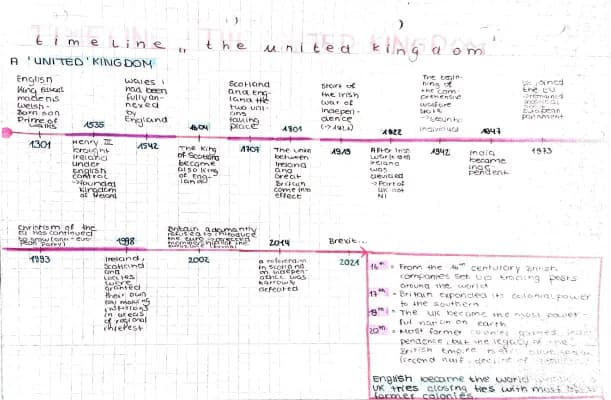 timeline „ the united kingdom"
A 'UNITED' KINGDOM
English
king
made his
Welsh-
born son
Prince of
Wales
1301
1535
Henry
brought
Ireland
under
English
control
→ founded
Kingdom
Wales
had been
fully an-
nexed
by
England
1542
1604
The King
of Scotland
became
also King
of Eng-
land
Scotland
and Eng-
land the
two uni-
ons
taking
place
1707
1801
The union
between
Ireland
and
Great
Britain
come into
effect
Start of
the Irish
war of
indepen-
dence
1919
1922
After Irish
war
Ireland
was
devided
→ Part of
UK not
NI
The begin-
ning of
the com-
prehensive
welfare
state
1942
1947
India
became
inde-
pendent
UK joined
the EU
parliament
1973
Criticism of the
EU has continued
1993
1998
Ireland,
Scotland
and
Wales
were
granted
their own
in areas
of regional
interest
Britain adamantly
refused to introduce
the euro
2002
2014
a referendum
in Scotland
on indepen-
dence was
narrowly
defeated
Brexit...
2021
16th = From the 16th centurary British
companies set up trading posts
around the world
17th = Britain expanded its colonial power
to the southern
19th = The UK became the most power-
ful nation on earth
20th = Most former colonies gained inde-
pendence, but the legacy of the
British Empire is still
(second half: decline of
English became the world
UK tries closing ties with most
former colonies.